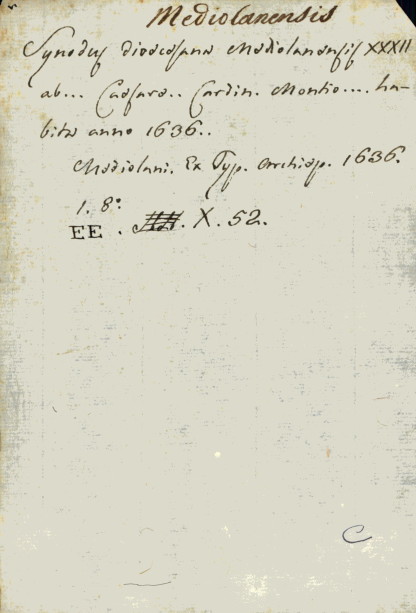 Mediolanensis
Synodus dioecesana Mediolanensis XXXII
ab... Caesare.. Cardin. Montio.... ha-
bita anno 1636..
Mediolani. Ex Typ. Archiep. 1636.
1. 8.°
EE. X. 52.
C